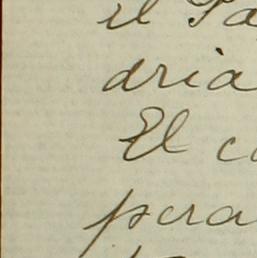 el Pa
dria
El c
pera